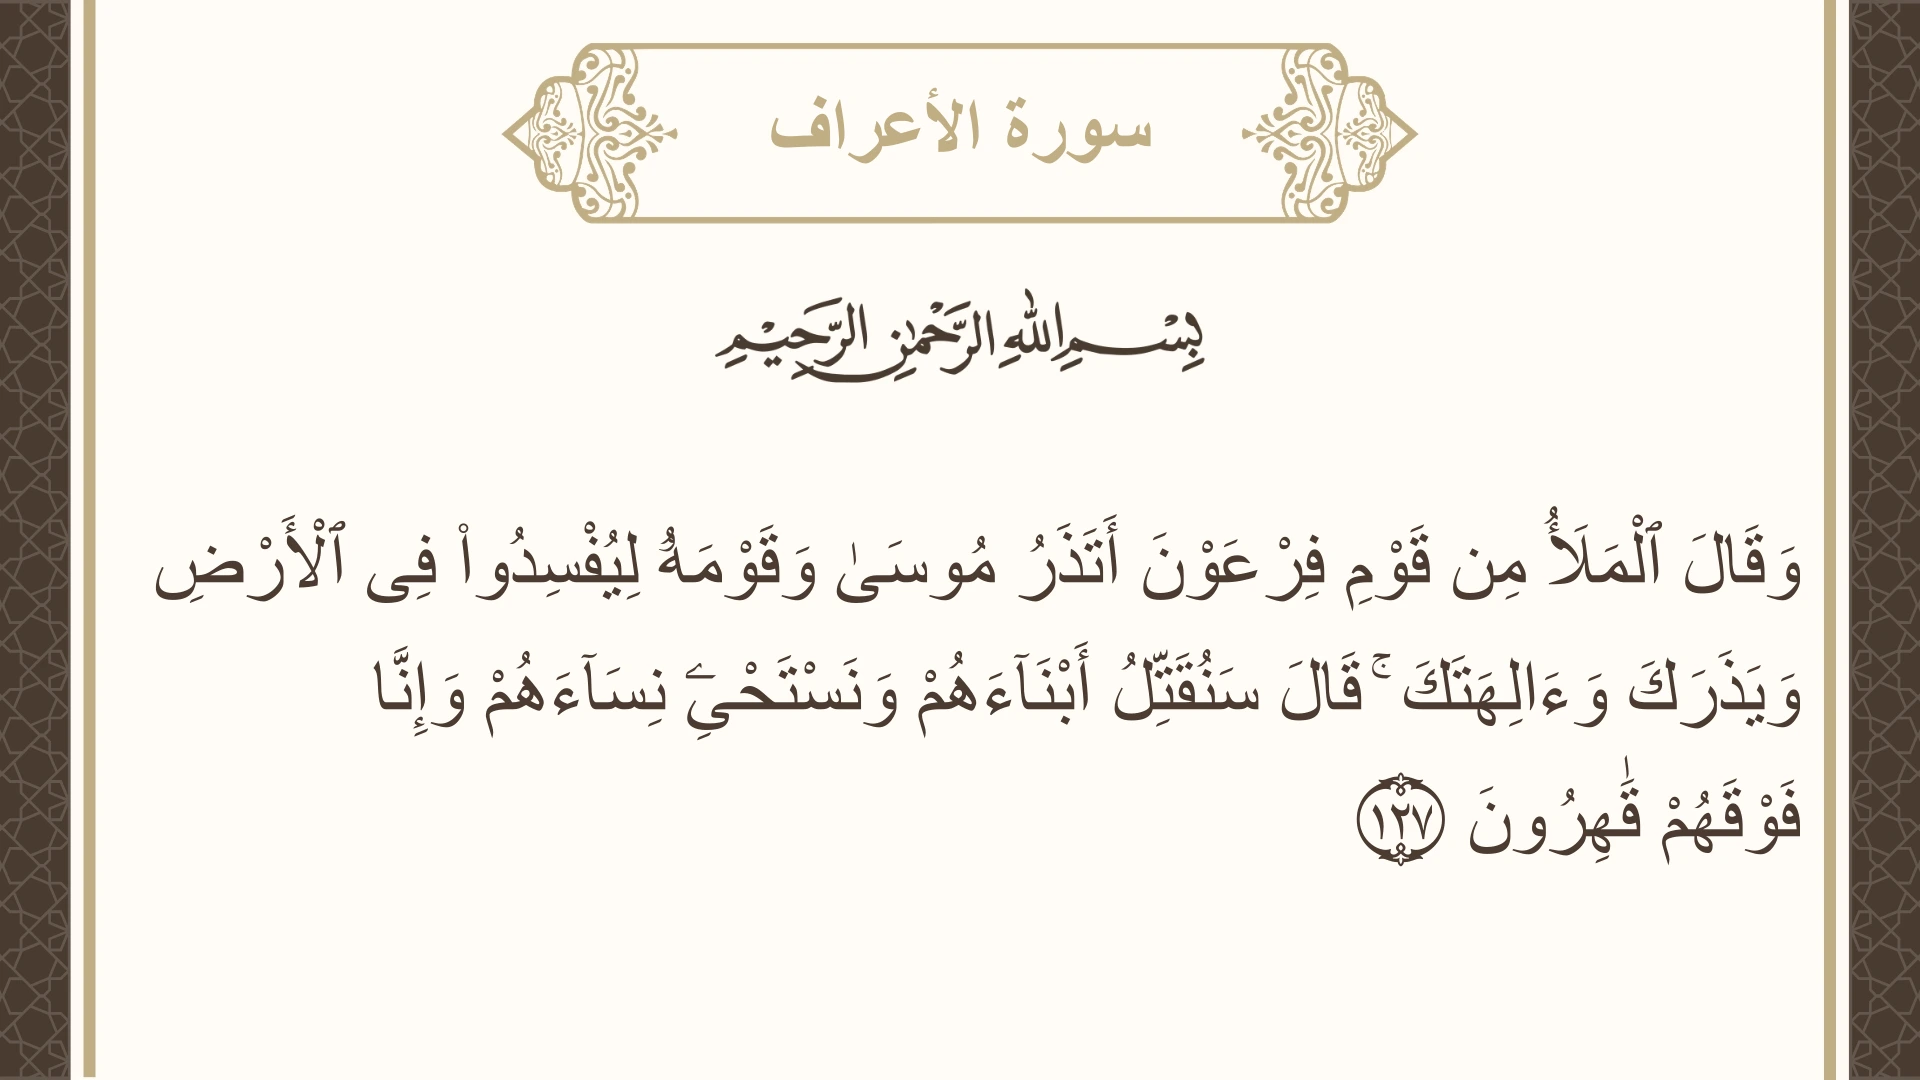 سورة الأعراف
بِسْمِ اللهِ الرَّحْمٰنِ الرَّحِيْمِ
وَقَالَ ٱلْمَلَأُ مِن قَوْمِ فِرْعَوْنَ أَتَذَرُ مُوسَىٰ وَقَوْمَهُۥ لِيُفْسِدُوا۟ فِى ٱلْأَرْضِ
وَيَذَرَكَ وَءَالِهَتَكَ ۚ قَالَ سَنُقَتِّلُ أَبْنَآءَهُمْ وَنَسْتَحْىِۦ نِسَآءَهُمْ وَإِنَّا
فَوْقَهُمْ قَٰهِرُونَ ١٢٧